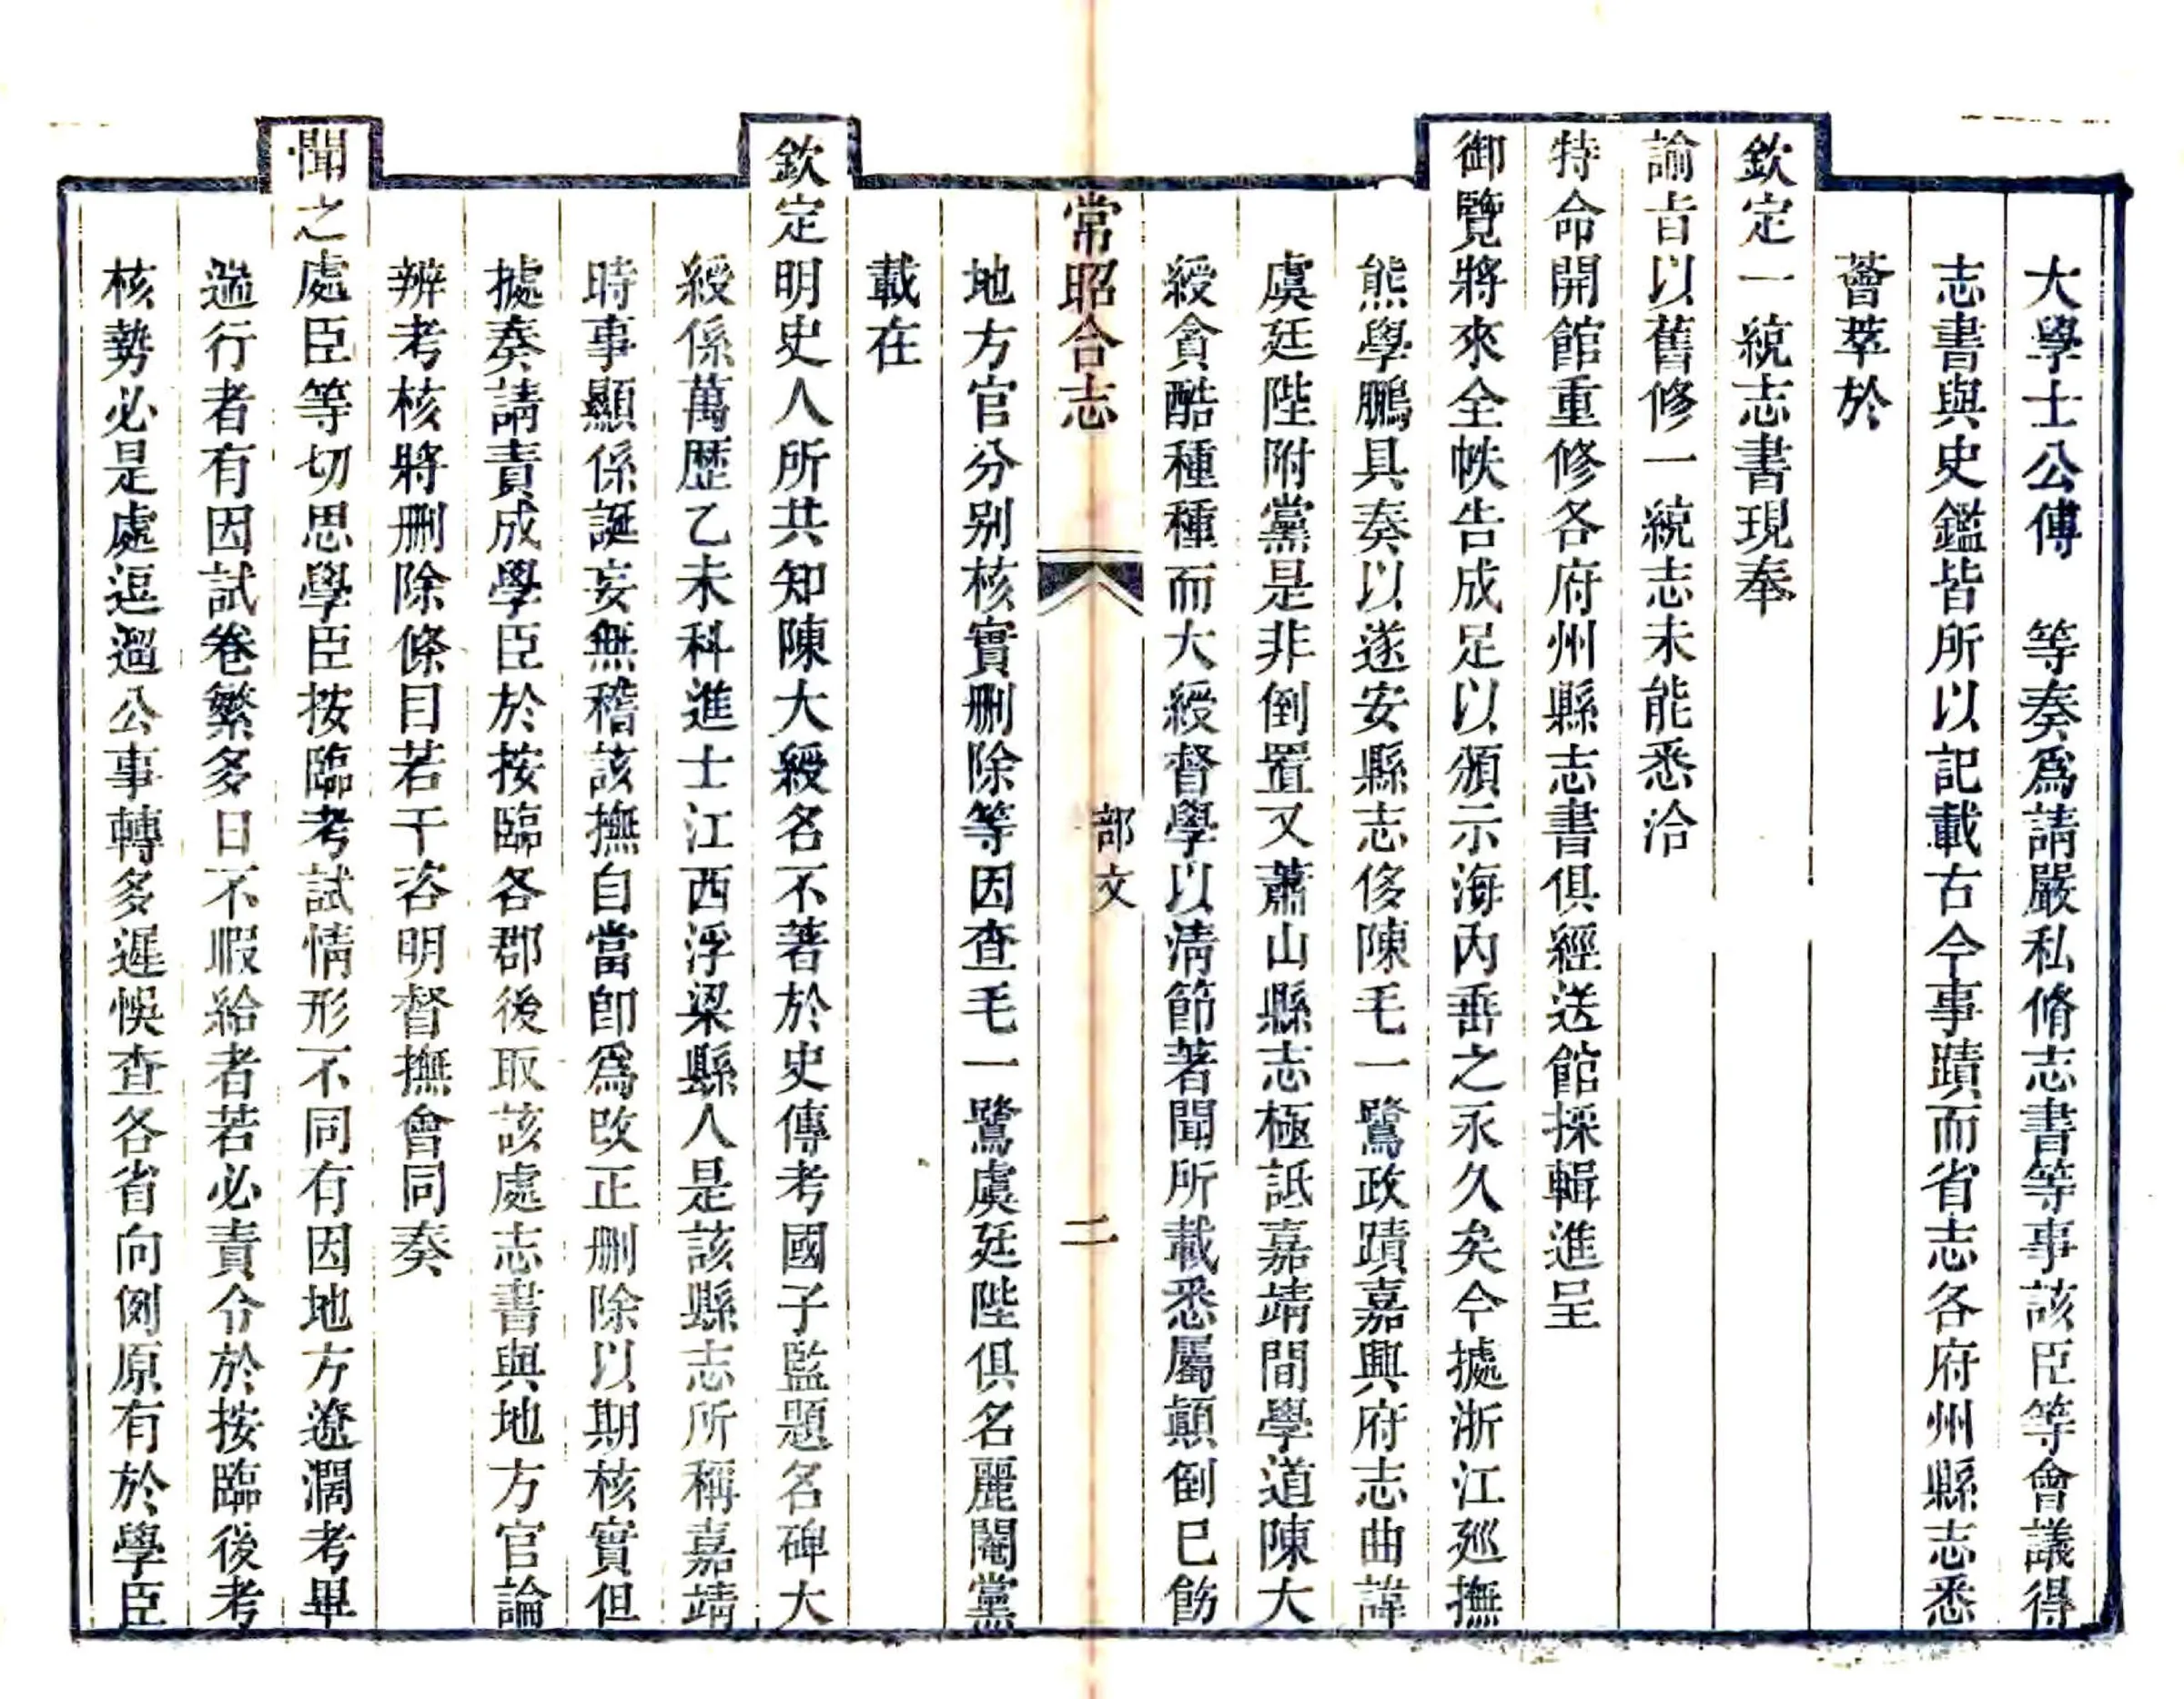 大學士公傅　等奏爲請嚴私脩志書等事該臣等會議得
志書與史鑑皆所以記載古今事蹟而省志各府州縣志悉
薈萃於
欽定一統志書現奉
諭旨以舊修一統志未能悉洽
特命開館重修各府州縣志書俱經送館採輯進呈
御覽將來全帙告成足以頒示海內垂之永久矣今據浙江廵撫
熊學鵬具奏以遂安縣志侈陳毛一鷺政蹟嘉興府志曲諱
虞廷陛附黨是非倒置又蕭山縣志極詆嘉靖間學道陳大
綬貪酷種種而大綬督學以清節著聞所載悉屬顛倒已飭
常昭合志
部文
二
地方官分别核實删除等因查毛一鷺虞廷陛俱名麗閹黨
載在
欽定明史人所共知陳大綬名不著於史傳考國子監題名碑大
綬係萬歷乙未科進士江西浮梁縣人是該縣志所稱嘉靖
時事顯係誕妄無稽該撫自當卽爲改正删除以期核實但
據奏請責成學臣於按臨各郡後取該處志書與地方官論
辨考核將删除條目若干咨明督撫會同奏
聞之處臣等切思學臣按臨考試情形不同有因地方遼濶考畢
遄行者有因試卷繁多日不暇給者若必責令於按臨後考
核勢必是處逗遛公事轉多遲悞查各省向例原有於學臣